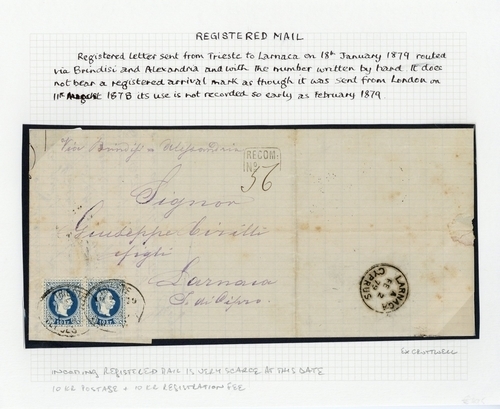 REGISTERED MAIL
Registered letter sent from Trieste to Larnaca on 18th January 1879 routed
via Brindisi and Alexandria and with the number written by hand. It does
not bear a registered arrival mark as though it was sent from London on
11th August 1878 its use is not recorded so early as February 1879
Via Brindisi e Alexandria
RECOM.
No. 36
Signor
Giuseppe Cirilli
e figli
Larnaca
S. di Cipro
LARNACA
CYPRUS
FE 2
79
INCOMING REGISTERED MAIL IS VERY SCARCE AT THIS DATE
10 KR POSTAGE + 10 KR REGISTRATION FEE